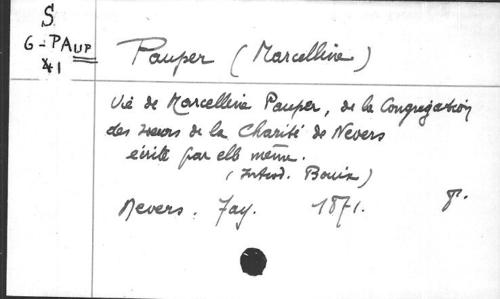 S
G-PAUP
41
Pauper (Marcelline)
Vie de Marcelline Pauper, de la Congrégation
des soeurs de la Charité de Nevers
écrite par elle même.
(Introd. Bouix)
Nevers. Fay. 1871. 8°.